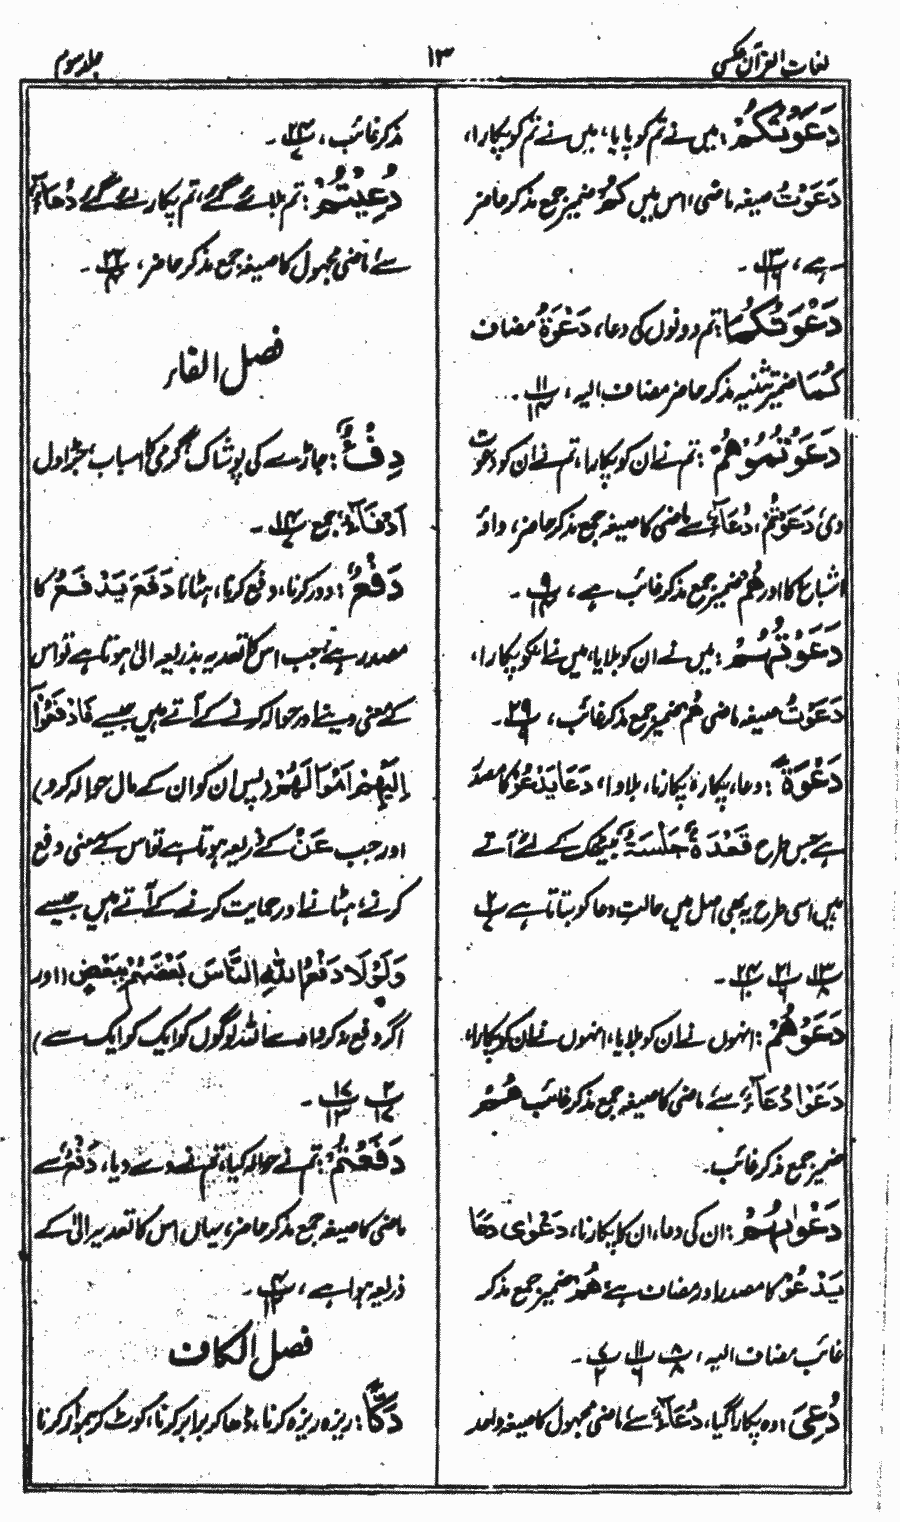 لغات القرآن عکسی
۱۳
جلد سوم
دَعَوْتُكُمْ: میں نے تم کو پایا، میں نے تم کو پکارا،
دَعَوْتُ صیغہ ماضی، اس میں کُمْ ضمیر جمع مذکر حاضر
ہے،
دَعَوْتُكُمَا: تم دونوں کی دعا، دَعْوَةُ مضاف
كُمَا ضمیر تثنیہ مذکر حاضر مضاف الیہ، پ ۱۱/۱۴۔
دَعَوْتُمُوْهُمْ: تم نے ان کو پکارا، تم نے ان کو دعوت
دی دَعَوْتُمْ، دُعَاءٌ سے ماضی کا صیغہ جمع مذکر حاضر، واؤ
اشباع کا اور هُمْ ضمیر جمع مذکر غائب ہے، پ ۹/۱۴۔
دَعَوْتُهُمْ: میں نے ان کو بلایا، میں نے انکو پکارا،
دَعَوْتُ صیغہ ماضی هُمْ ضمیر جمع مذکر غائب، پ ۲۹/۹۔
دَعْوَةً: دعا، پکار، پکارنا، بلاوا، دَعَا يَدْعُوْ کا مصدر
ہے جس طرح قَعْدَةٌ جَلْسَةٌ بیٹھک کے لئے آتے
ہیں اسی طرح یہ بھی اصل میں حالتِ دعا کو بتاتا ہے پ ۲
دَعَوْهُمْ: انہوں نے ان کو بلایا، انہوں نے ان کو پکارا،
دَعَوْا دُعَاءٌ سے ماضی کا صیغہ جمع مذکر غائب هُمْ
ضمیر جمع مذکر غائب۔
دَعْوٰىهُمْ: ان کی دعا، ان کا پکارنا، دَعْوٰى دَعَا
يَدْعُوْ کا مصدر اور مضاف ہے هُمْ ضمیر جمع مذکر
غائب مضاف الیہ، پ ۸/۸ پ ۱۱/۶ پ
دُعِىَ: وہ پکارا گیا، دُعَاءٌ سے ماضی مجہول کا صیغہ واحد
مذکر غائب، پ ۲۴۔
دُعِيْتُمْ: تم بلائے گئے، تم پکارے گئے دُعَاءٌ
سے ماضی مجہول کا صیغہ جمع مذکر حاضر، پ ۲۲/۴۔
فصل الفاء
دِفْءٌ: جاڑے کی پوشاک، گرمی کا اسباب، جڑاول
اَدْفَاءٌ جمع پ ۱۴۔
دَفْعُ: دور کرنا، دفع کرنا، ہٹانا دَفَعَ يَدْفَعُ کا
مصدر ہے جب اس کا تعدیہ بذریعہ الیٰ ہوتا ہے تو اس
کے معنی دینے اور حوالہ کرنے کے آتے ہیں جیسے فَادْفَعُوْا
اِلَيْهِمْ اَمْوَالَهُمْ (پس ان کو ان کے مال حوالہ کرو)
اور جب عَنْ کے ذریعہ ہوتا ہے تو اس کے معنی دفع
کرنے، ہٹانے اور حمایت کرنے کے آتے ہیں جیسے
وَلَوْلَا دَفْعُ اللّٰهِ النَّاسَ بَعْضَهُمْ بِبَعْضٍ (اور
اگر دفع نہ کروا دے اللہ لوگوں کو ایک کو ایک سے)
پ ۲/۱۷ پ ۱۷/۱۳۔
دَفَعْتُمْ: تم نے حوالہ کیا، تم نے دے دیا، دَفْعٌ سے
ماضی کا صیغہ جمع مذکر حاضر، یہاں اس کا تعدیہ الیٰ کے
ذریعہ ہوا ہے، پ ۴/۱۲۔
فصل الکاف
دَكًّا: ریزہ ریزہ کرنا، ڈھا کر برابر کرنا، کوٹ کر ہموار کرنا